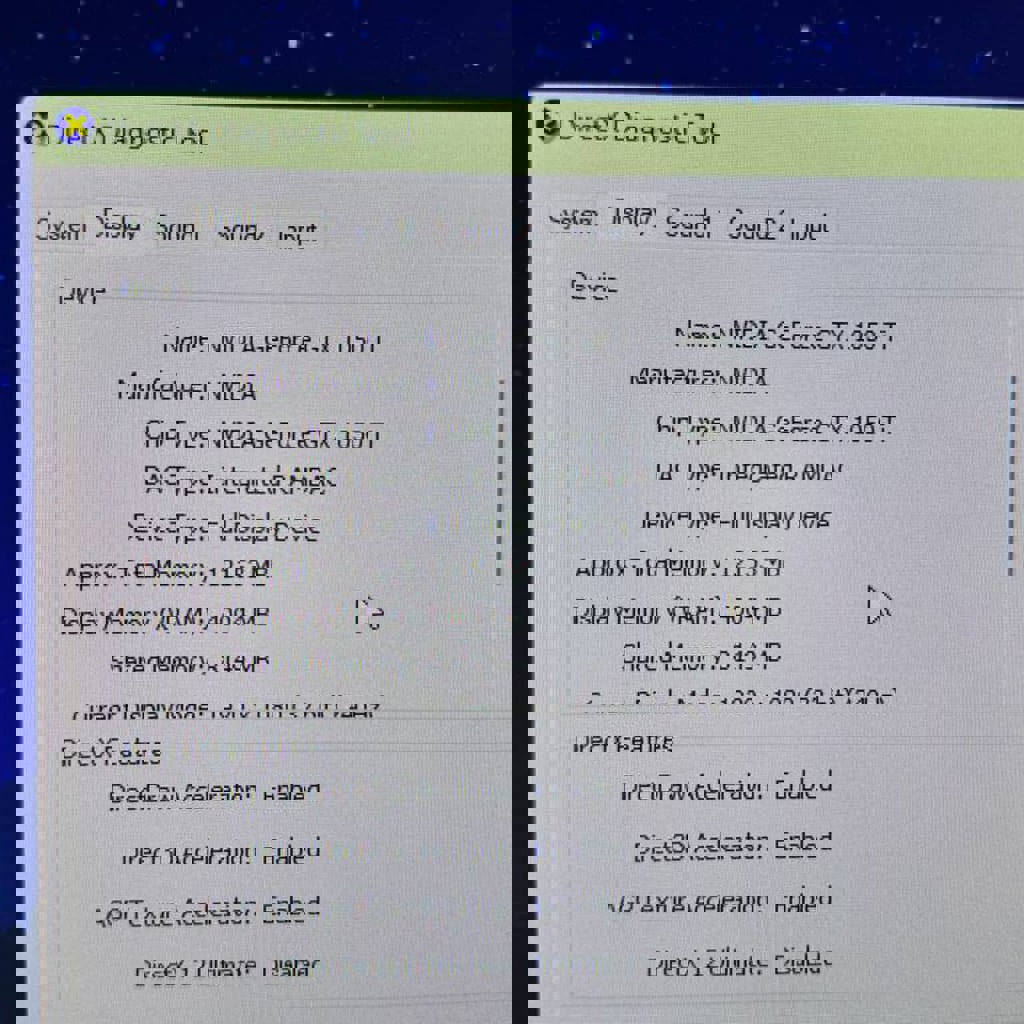 DirectX Diagnostic Tool
System Display Sound 1 Sound 2 Input
Device
Name: NVIDIA GeForce GTX 1050 Ti
Manufacturer: NVIDIA
Chip Type: NVIDIA GeForce GTX 1050 Ti
DAC Type: Integrated RAMDAC
Device Type: Full Display Device
Approx. Total Memory: MB
Display Memory (VRAM): MB
Shared Memory: MB
Current Display Mode:
DirectX Features
DirectDraw Acceleration: Enabled
Direct3D Acceleration: Enabled
AGP Texture Acceleration: Enabled
DirectX 12 Ultimate: Disabled
DirectX Diagnostic Tool
System Display Sound 1 Sound 2 Input
Device
Name: NVIDIA GeForce GTX 1050 Ti
Manufacturer: NVIDIA
Chip Type: NVIDIA GeForce GTX 1050 Ti
DAC Type: Integrated RAMDAC
Device Type: Full Display Device
Approx. Total Memory: MB
Display Memory (VRAM): MB
Shared Memory: MB
Display Mode:
DirectX Features
DirectDraw Acceleration: Enabled
Direct3D Acceleration: Enabled
AGP Texture Acceleration: Enabled
DirectX 12 Ultimate: Disabled